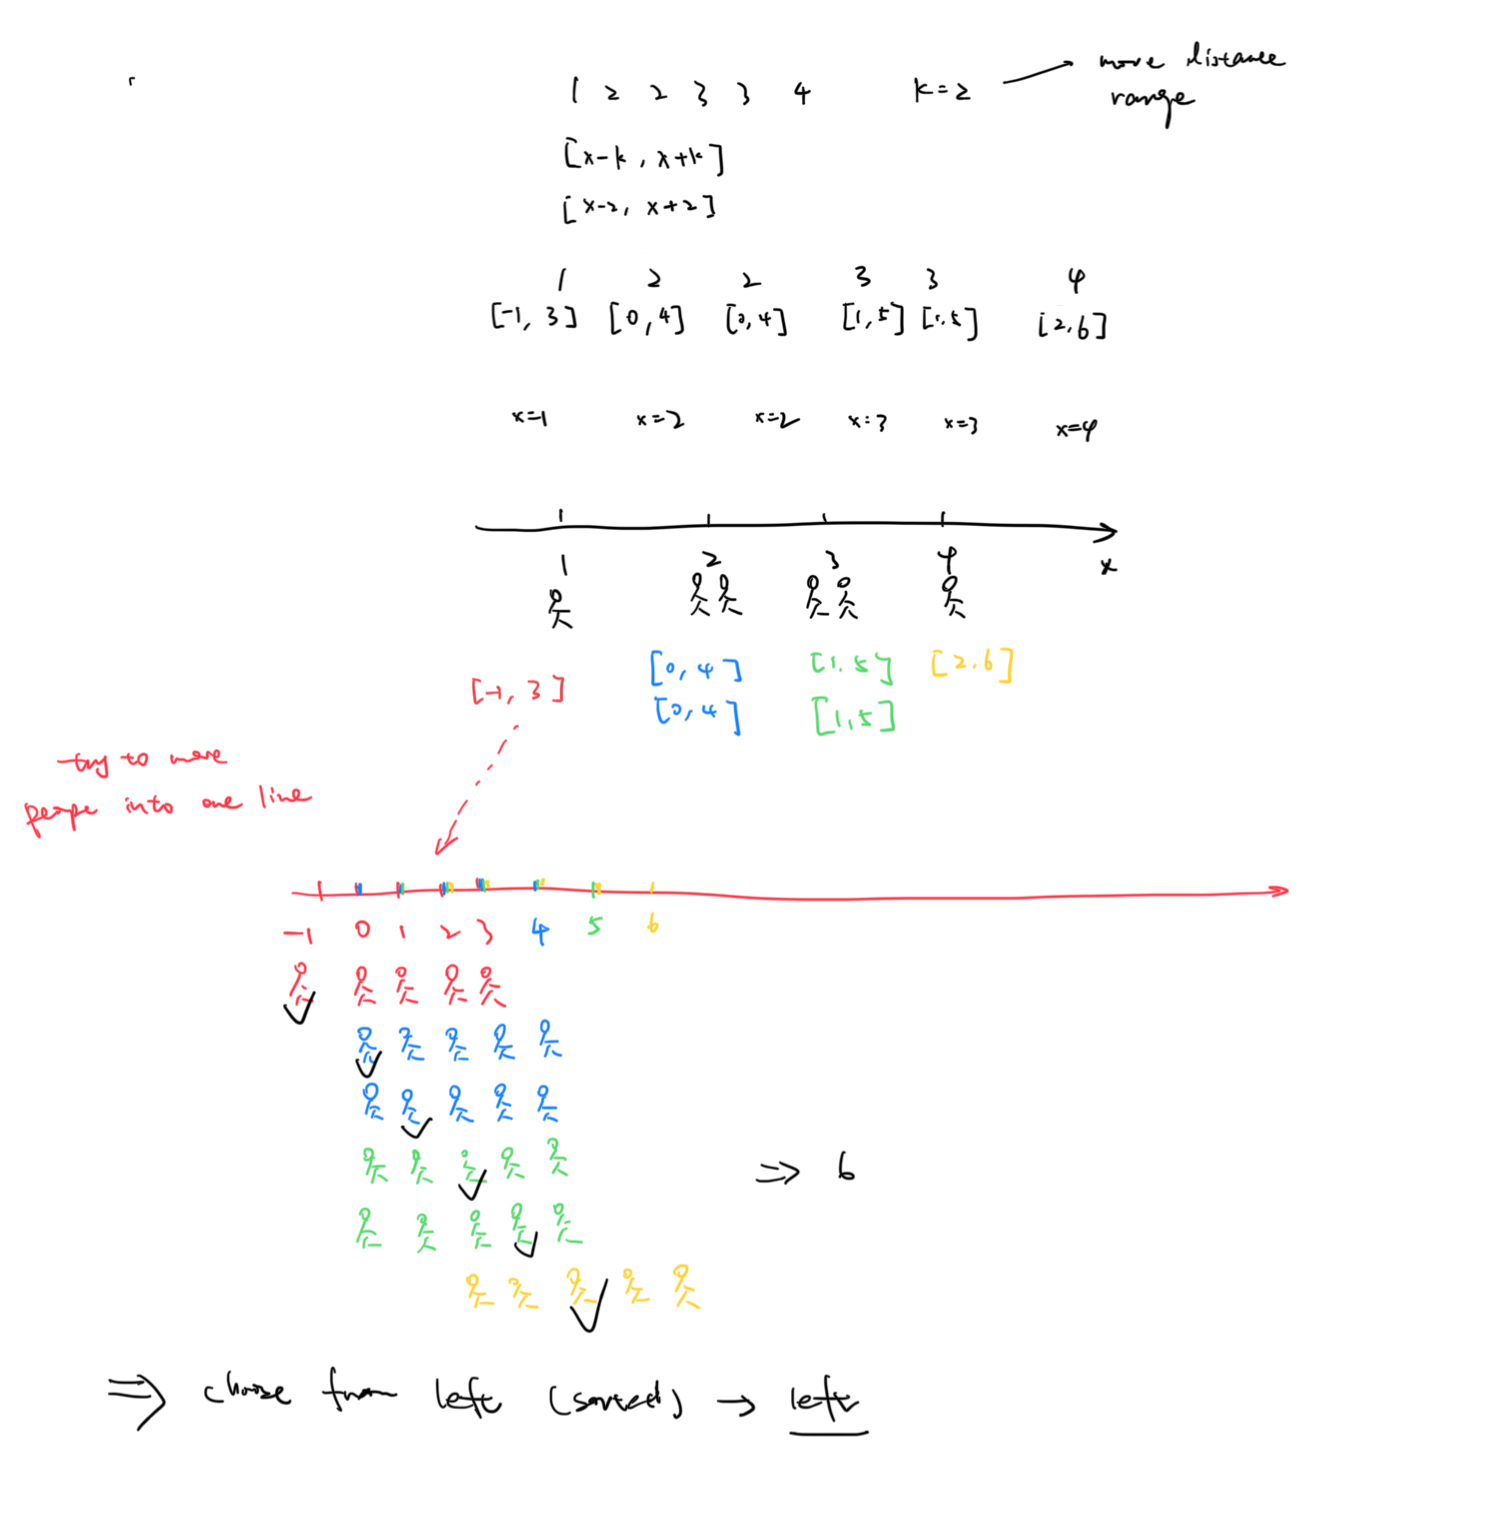 1 2 2 3 3 4 k=2 → move distance
range
[x-k, x+k]
[x-2, x+2]
1 2 2 3 3 4
[-1, 3] [0, 4] [0, 4] [1, 5] [1, 5] [2, 6]
x=1 x=2 x=2 x=3 x=3 x=4
1 2 3 4 x
[0, 4] [1, 5] [2, 6]
[-1, 3] [0, 4] [1, 5]
try to move
people into one line
-1 0 1 2 3 4 5 6
⇒ 6
⇒ choose from left (sorted) → left